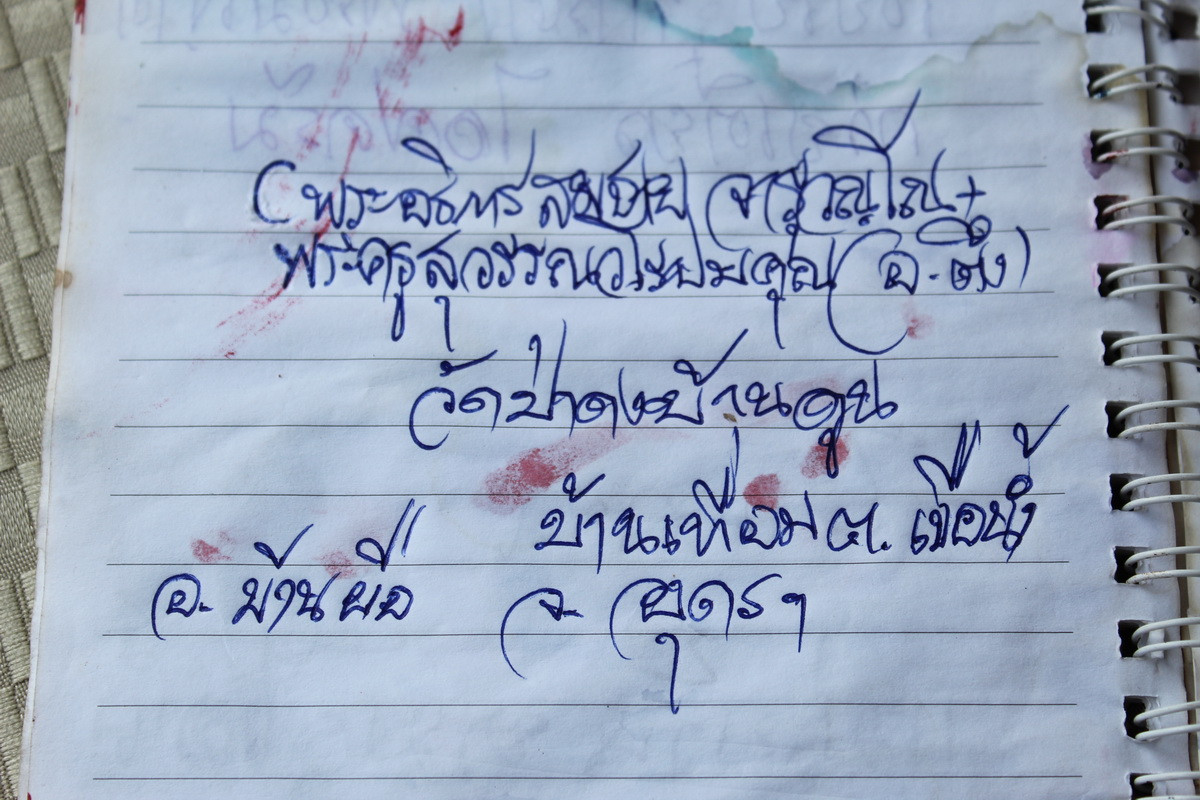 (พระอธิการสมชาย จารุวณฺโณ +
พระครูสุวรรณวโรปมคุณ (อ.ตึ๋ง)
วัดป่าดงบ้านคูน
บ้านเทื่อม ต. เขือน้ำ
อ. บ้านผือ จ. อุดรฯ